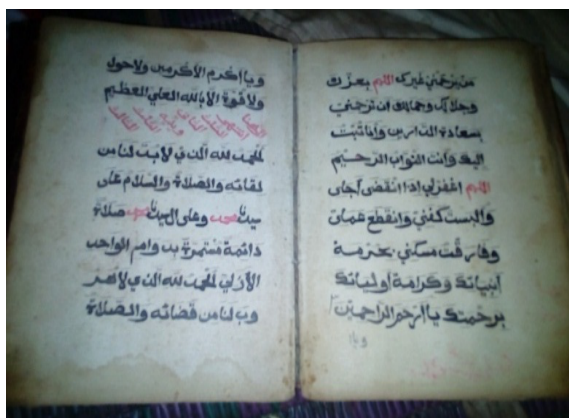 من يرحمني غيرك اللهم بعزك
وجلالك وجمالك ان ترحمني
بسعادة الدارين وانا تبت
اليك وانت التواب الرحيم
اللهم اغفر لي اذا انقضى اجلي
والبست كفني وانقطع عملي
وفارقت مسكني بحرمة
أنبيائك وكرامة أوليائك
برحمتك يا أرحم الراحمين
ويا
ويا أكرم الأكرمين ولا حول
ولا قوة الا بالله العلي العظيم
الحمد لله الذي لا بد لنا من
لقائه والصلاة والسلام على
سيدنا محمد وعلى ال سيدنا محمد صلاة
دائمة مستمرة بدوام الواحد
الأزلي الحمد لله الذي لا مهر
وب لنا من قضائه والصلاة